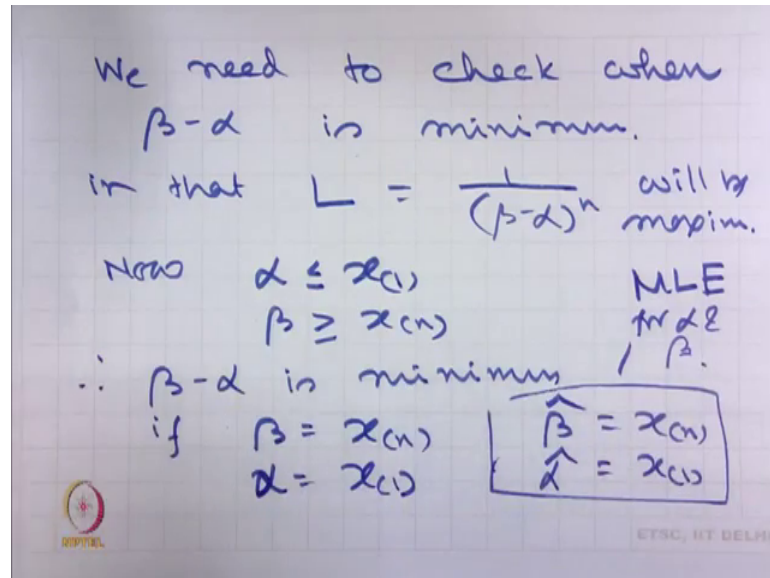 We need to check when
β-α is minimum.
in that L = 1/(β-α)^n will be maxim.
Now α ≤ x(1)
β ≥ x(n)
MLE
for α &
β.
∴ β-α is minimum
if β = x(n)
α = x(1)
β̂ = x(n)
α̂ = x(1)
NPTEL
ETSC, IIT DELHI